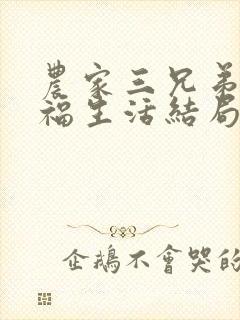 農家三兄弟
福生活結局
企鵝不會哭的